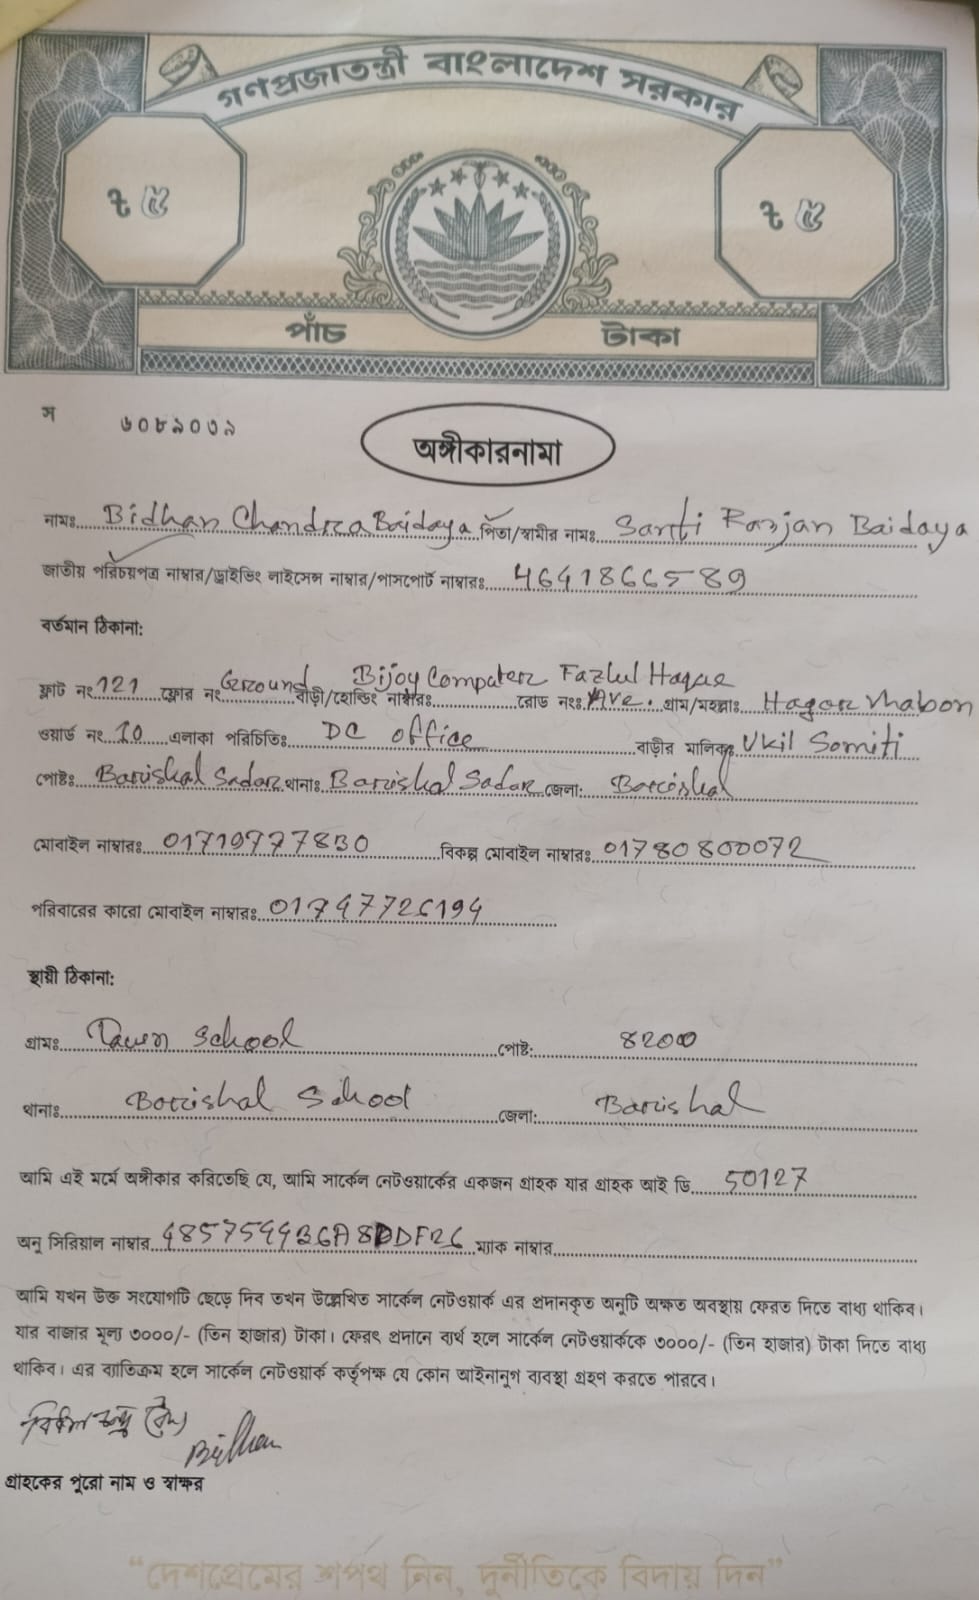 গণপ্রজাতন্ত্রী বাংলাদেশ সরকার
৳ ৫ ৳ ৫
পাঁচ টাকা
স ৬০৮৯০৩৯
অঙ্গীকারনামা
নামঃ Bidhan Chandra Baidaya পিতা/স্বামীর নামঃ Santi Ranjan Baidaya
জাতীয় পরিচয়পত্র নাম্বার/ড্রাইভিং লাইসেন্স নাম্বার/পাসপোর্ট নাম্বারঃ 4641866589
বর্তমান ঠিকানা:
ফ্লাট নং 121 ফ্লোর নং Ground বাড়ী/হোল্ডিং নাম্বারঃ Bijoy Computer রোড নংঃ Fazlul Haque Ave. গ্রাম/মহল্লাঃ
ওয়ার্ড নং 10 এলাকা পরিচিতিঃ DC office বাড়ীর মালিকঃ Ukil Somiti
পোষ্টঃ Barishal Sadar থানাঃ Barishal Sadar জেলা: Barishal
মোবাইল নাম্বারঃ 01719777830 বিকল্প মোবাইল নাম্বারঃ 01780800072
পরিবারের কারো মোবাইল নাম্বারঃ 01747726194
স্থায়ী ঠিকানা:
গ্রামঃ Town School পোষ্ট: 8200
থানাঃ Barishal School জেলা: Barishal
আমি এই মর্মে অঙ্গীকার করিতেছি যে, আমি সার্কেল নেটওয়ার্কের একজন গ্রাহক যার গ্রাহক আই ডি 50127
অনু সিরিয়াল নাম্বার 485754436A8DDF26 ম্যাক নাম্বার
আমি যখন উক্ত সংযোগটি ছেড়ে দিব তখন উল্লেখিত সার্কেল নেটওয়ার্ক এর প্রদানকৃত অনুটি অক্ষত অবস্থায় ফেরত দিতে বাধ্য থাকিব।
যার বাজার মূল্য ৩০০০/- (তিন হাজার) টাকা। ফেরৎ প্রদানে ব্যর্থ হলে সার্কেল নেটওয়ার্ককে ৩০০০/- (তিন হাজার) টাকা দিতে বাধ্য
থাকিব। এর ব্যাতিক্রম হলে সার্কেল নেটওয়ার্ক কর্তৃপক্ষ যে কোন আইনানুগ ব্যবস্থা গ্রহণ করতে পারবে।
Bidhan
গ্রাহকের পুরো নাম ও স্বাক্ষর
“দেশপ্রেমের শপথ নিন, দুর্নীতিকে বিদায় দিন”